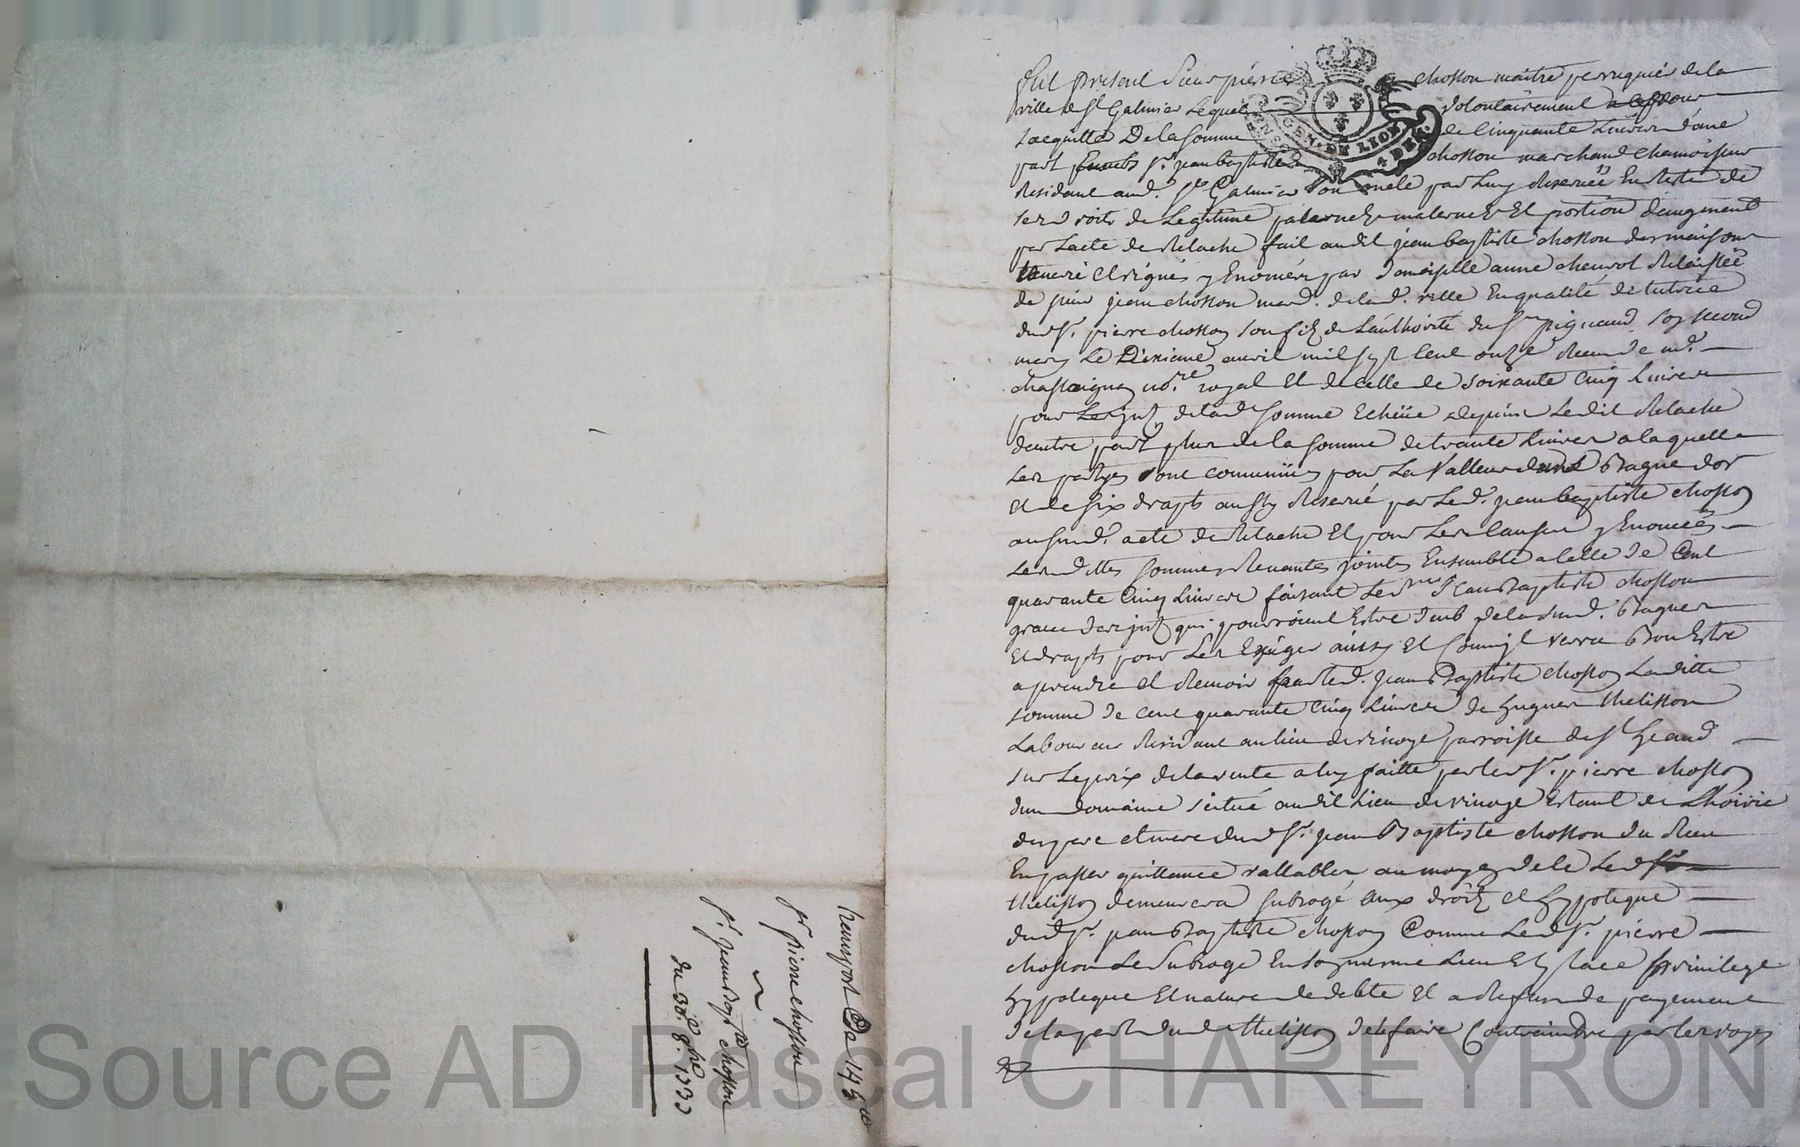 Fut present Sieur pierre chosson maitre perruquier de la
ville de St Galmier Lequel volontairement
sacquitter De la somme de Cinquante Livres d'une
part Envers Sr. jean baptiste chosson marchand chamoiseur
Residant aud. St Galmier Son oncle par Luy Reservée En Reste de
ses droits de Legitime paternelle maternelle Et portion daugment
par Lacte de Relache fait audit jean baptiste chosson des maisons
y Enoncés par damoiselle anne relaissée
de feu jean chosson mard. de lad. ville En qualité de tutrice
dud Sr. pierre chosson son fils de Lauthorité du Sr pignaud son second
mary Le Dixieme avril mil sept Cent onze Receu de me.
chassaignon nore. royal Et de celle de soixante Cinq Livres
pour Les jnts de lad somme Echüe depuis Ledit Relache
dautre part plus de la somme de trante Livres a laquelle
Les partyes sont convenües pour La Valleur dune Bague dor
Et de six drapts aussy Reservé par Led. jean baptiste chosson
au sud. acte de Relache Et pour Les clauses y Enoncées
Lesdittes sommes Revenantes jointes Ensemble a celle de Cent
quarante Cinq Livres faisant Led Sr Jean Baptiste chosson
grace des jnts qui pourroient Estre deub de la sud. Bague
Et drapts pour Les Exiger ainsy Et Comm'jl verra Bon Estre
a prendre et Recevoir par led. jean Baptiste chosson Laditte
somme de cent quarante Cinq Livres de hugues thelisson
Laboureur Residant au lieu de vinoge parroisse de St heand
sur Le prix de la vente a luy faitte par led Sr. pierre chosson
dun domaine scitué audit Lieu de vinoge Estant de Lhoirie
du pere et mere dud Sr. jean Baptiste chosson du Receu
En passer quittance vallable au moyen de ce Led Sr
thelisson demeurera subrogé aux droits et hypoteque
dud Sr. jean Baptiste chosson Comme Led Sr. pierre
chosson Le subroge En son mesme Lieu Et place privilege
hypoteque Et nature de debte Et a deffaut de payement
de la part dud thelisson de le faire Contraindre par les voyes
transport De 145 ll
Sr pierre chosson
a
Sr jean Bapte chosson
du 31e 8bre 1732
Source AD Pascal CHAREYRON
GEN. DE LION
4 DEN.